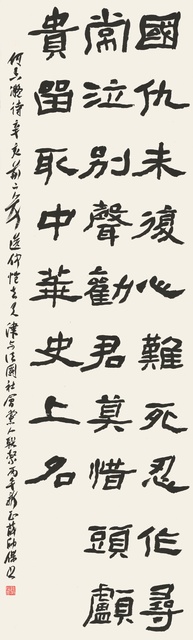 國仇未復心難死忍作尋
常泣别聲勸君莫惜頭顱
貴留取中華史上名
何香凝詩辛亥前二年送仲愷去天津与法國社會黨人聯繫